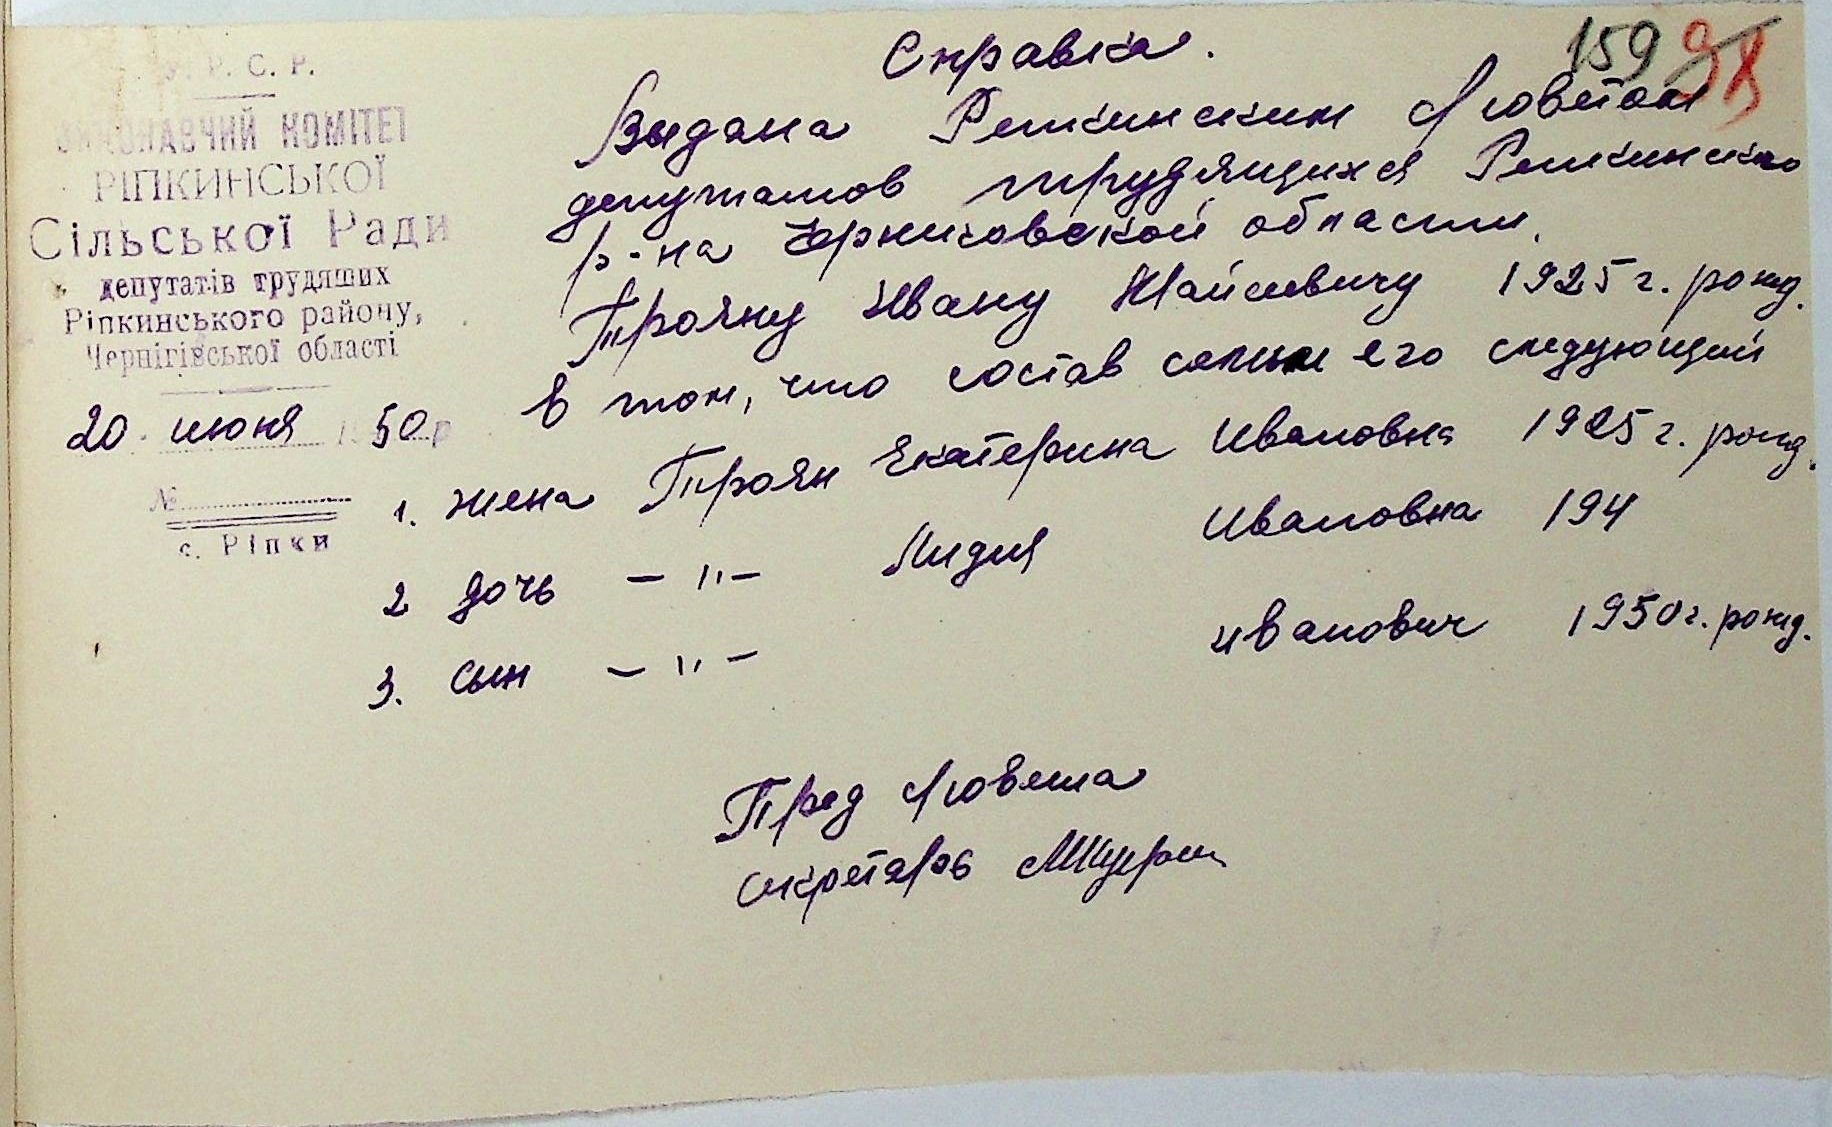 Справка.
159
У. Р. С. Р.
ВИКОНАВЧИЙ КОМІТЕТ
РІПКИНСЬКОЇ
Сільської Ради
депутатів трудящих
Ріпкинського району,
Чернігівської області
20 июня 1950 р
№
с. Ріпки
Выдана Репкинским с/советом
депутатов трудящихся Репкинского
р-на Черниговской области.
Трояну Ивану 1925 г. рожд.
в том, что состав семьи его следующий
1. жена Троян Екатерина Ивановна 1925 г. рожд.
2 дочь — " — Лидия Ивановна 194
3. сын — " — Иванович 1950 г. рожд.
Пред с/совета
секретарь